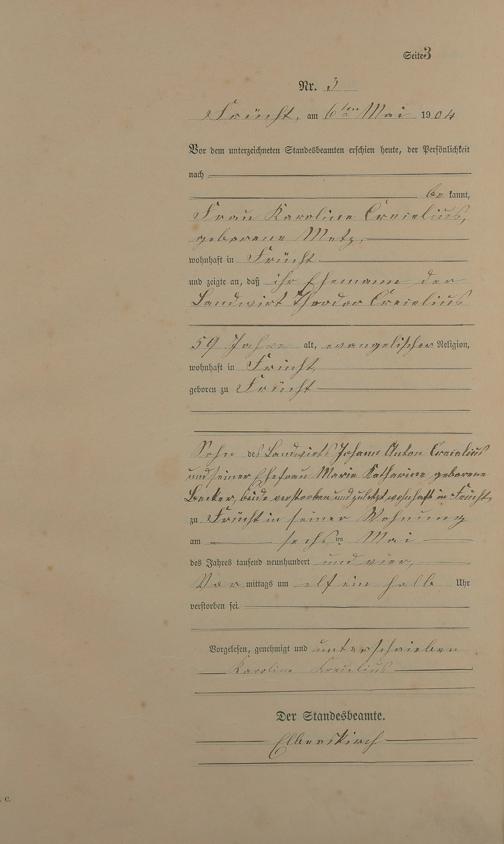 Seite 3
Nr. 3
Frücht, am 6ten Mai 1904
Vor dem unterzeichneten Standesbeamten erschien heute, der Persönlichkeit
nach
be kannt,
Frau Karoline Creielius,
geborene Metz,
wohnhaft in Frücht
und zeigte an, daß ihr Ehemann der
Landwirt Theodor Creielius
59 Jahre alt, evangelischer Religion,
wohnhaft in Frücht
geboren zu Frücht
Sohn des Landwirts Johann Anton Creielius
und seiner Ehefrau Maria Katharine geborene
Becker, beide verstorben und zuletzt wohnhaft in Frücht,
zu Frücht in seiner Wohnung
am sechsten Mai
des Jahres tausend neunhundert und vier,
Vor mittags um elf ein halb Uhr
verstorben sei.
Vorgelesen, genehmigt und unterschrieben
Karoline Creielius
Der Standesbeamte.
C.